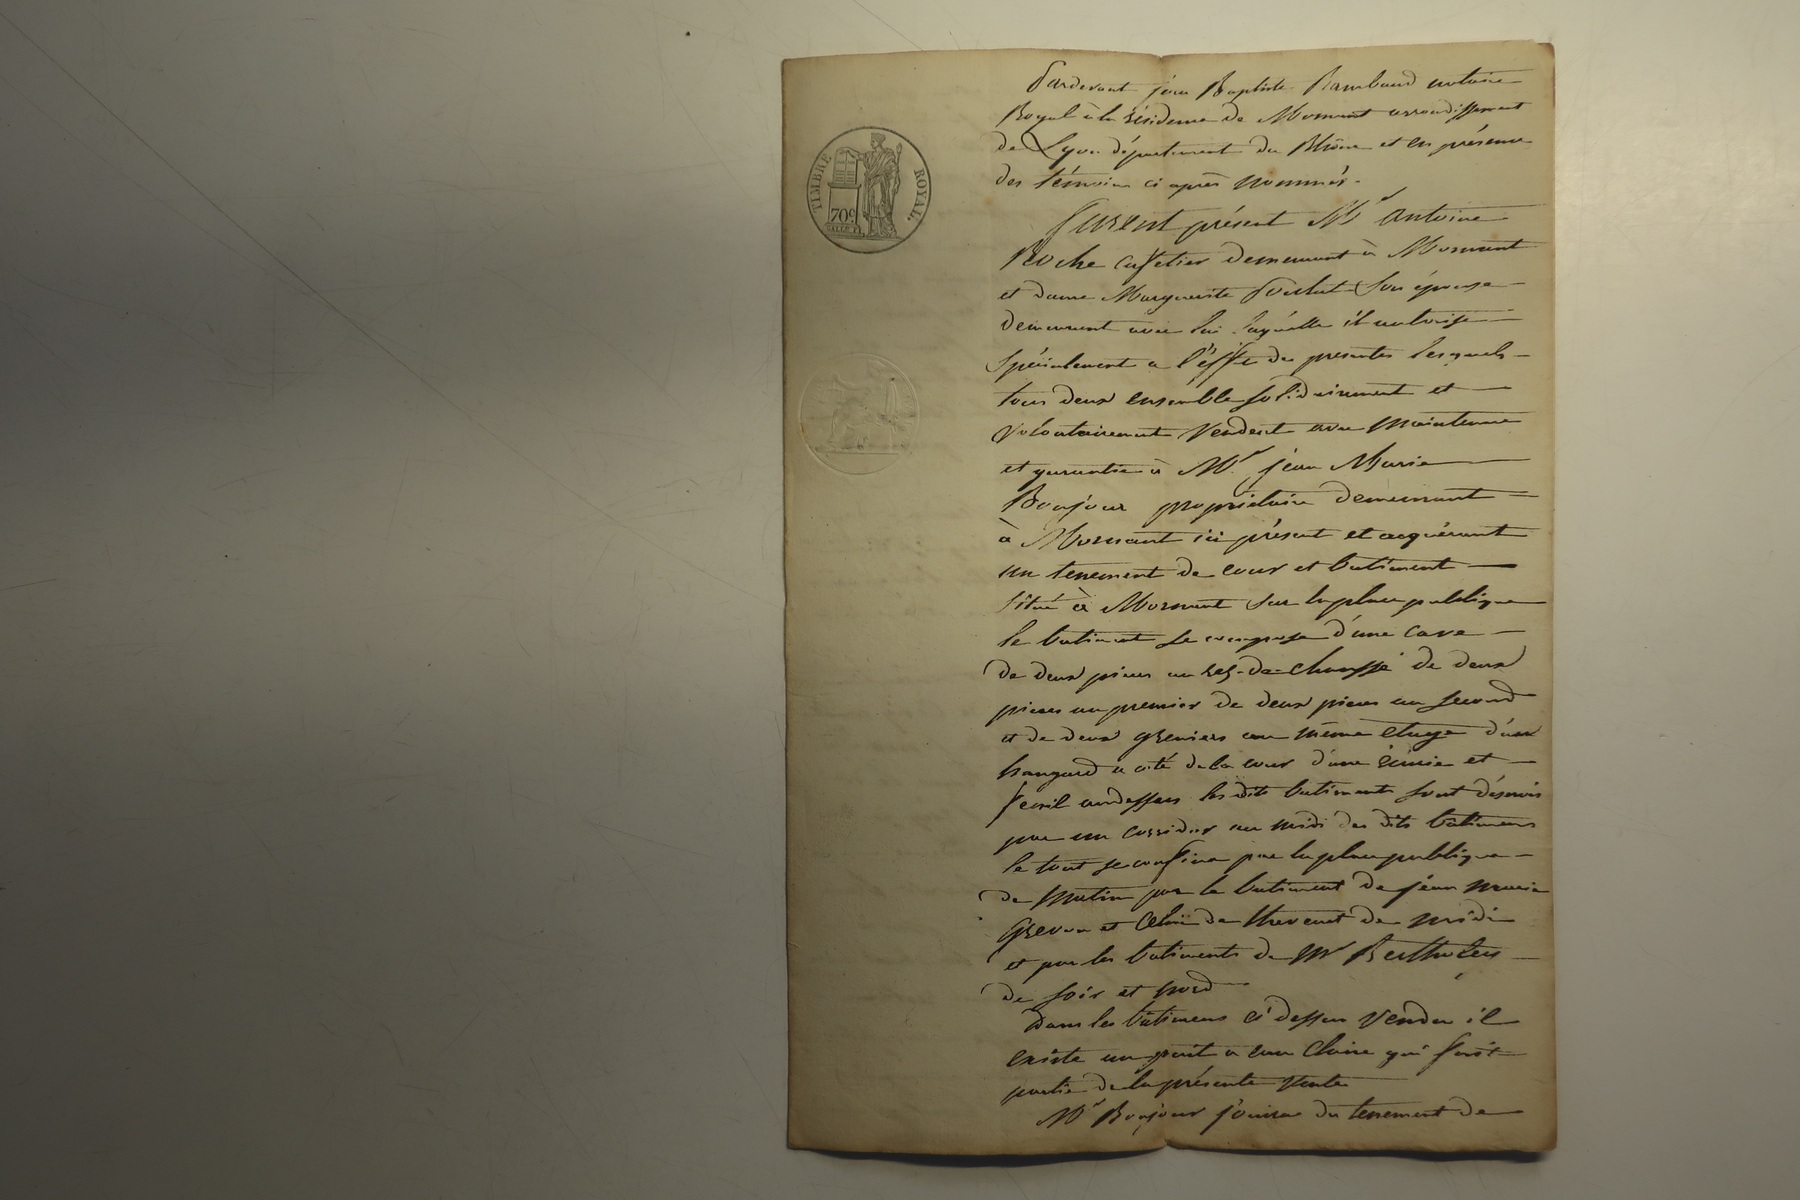 TIMBRE ROYAL.
70c
Pardevant jéan Baptiste Rambaud notaire
Royal à la résidence de Mornant arrondissement
de Lyon département du Rhône et en présence
des témoins ci après nommés.
furent présent Mr Antoine
Roche cafetier demeurant à Mornant
et dame Marguerite son épouse
demeurant avec lui laquelle il autorise
spécialement a l'éffet des presentes lesquels
tous deux ensemble solidairement et
volontairement vendent avec maintenue
et garantie à Mr jean Marie
Bonjour propriétaire demeurant
à Mornant ici présent et acquérant
un tenement de cour et batiment
situé à Mornant sur la place publique
le batiment se compose d'une cave
de deux pieces au rez-de-chaussé de deux
pieces au premier de deux pieces au second
et de deux greniers au même étage d'un
hangard a coté de la cour d'une écurie et
fenil audessus les dits batiments sont désservis
par un corridor au midi des dits bâtimens
le tout se confine par la place publique
de matin par le batiment de jéan marie
et celui de thevenet de midi
et par les batiments de Mr
de soir et nord
Dans les bâtimens ci dessus vendu il
existe un puit a eau claire qui fait
partie de la présente vente
Mr Bonjour jouira du tenement de